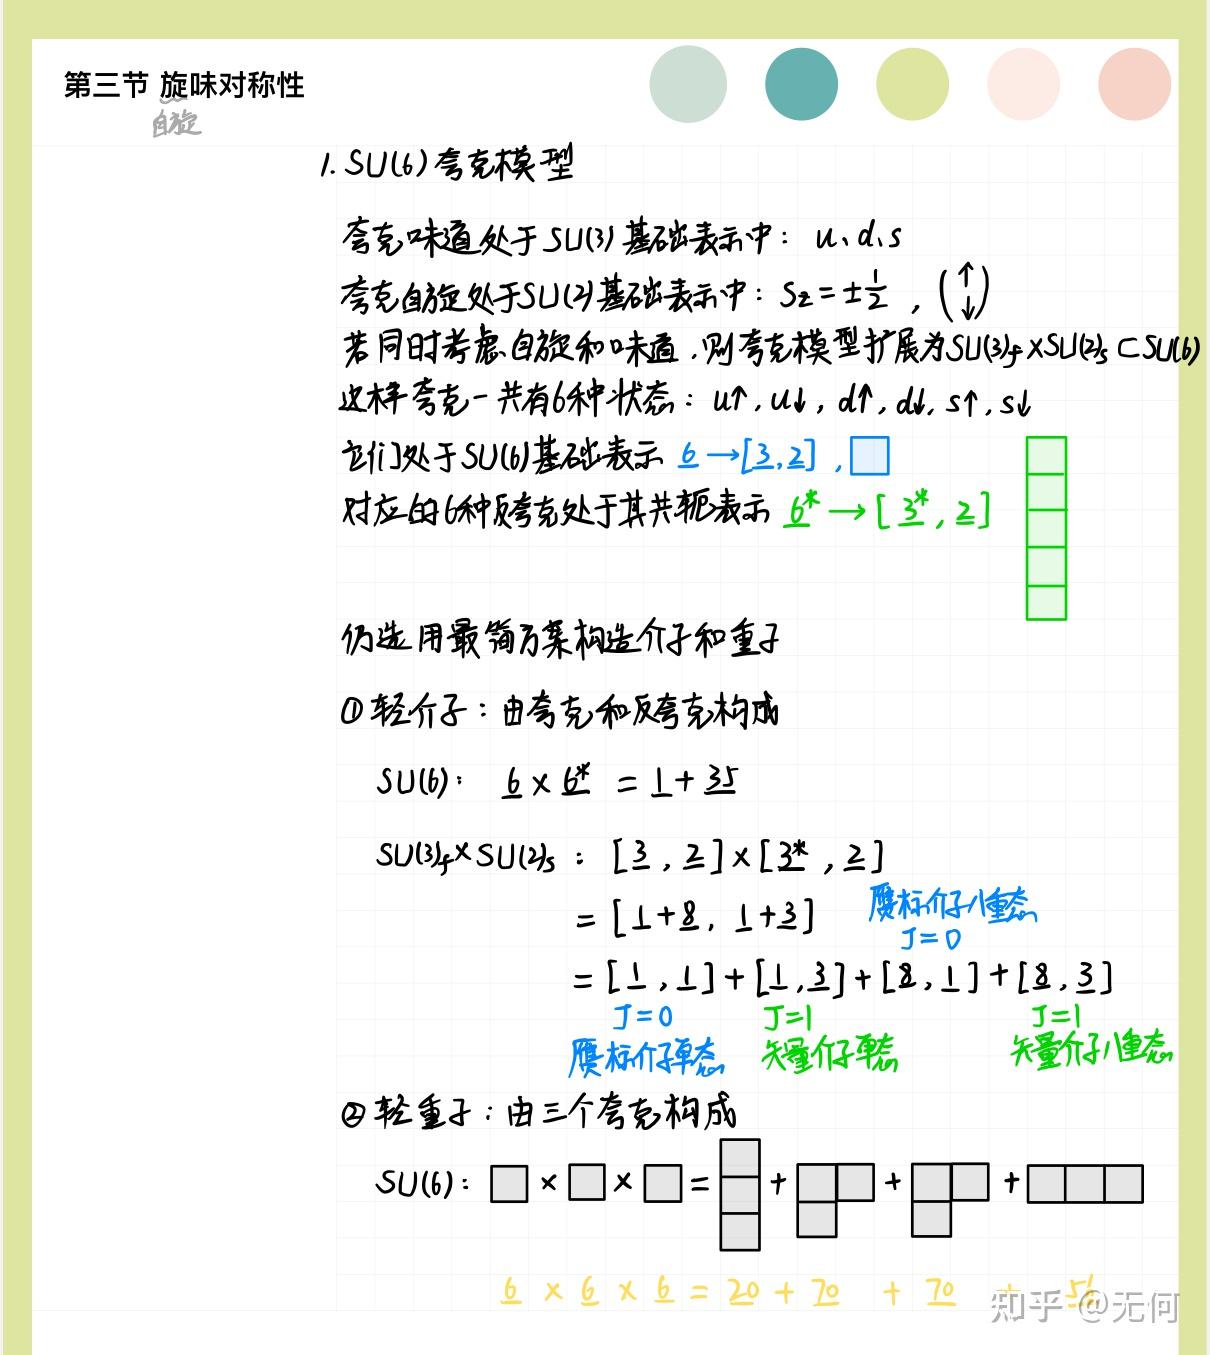 第三节 旋味对称性
自旋
1. SU(6)夸克模型
夸克味道处于SU(3)基础表示中: u、d、s
夸克自旋处于SU(2)基础表示中: Sz = ±1/2 , (↑↓)
若同时考虑自旋和味道,则夸克模型扩展为SU(3)f×SU(2)s⊂SU(6)
这样夸克一共有6种状态: u↑, u↓, d↑, d↓, s↑, s↓
它们处于SU(6)基础表示 6→[3,2] ,
对应的6种反夸克处于其共轭表示 6*→[3*,2]
仍选用最简方案构造介子和重子
①轻介子:由夸克和反夸克构成
SU(6): 6 × 6* = 1 + 35
SU(3)f×SU(2)s : [3, 2]×[3*, 2]
= [1+8, 1+3]
赝标介子八重态
J=0
= [1, 1]+[1,3]+[8,1]+[8,3]
J=0 J=1 J=1
赝标介子单态 矢量介子单态 矢量介子八重态
②轻重子:由三个夸克构成
SU(6): □ × □ × □ = + + +
6 × 6 × 6 = 20 + 70 + 70 + 56
知乎 @无何